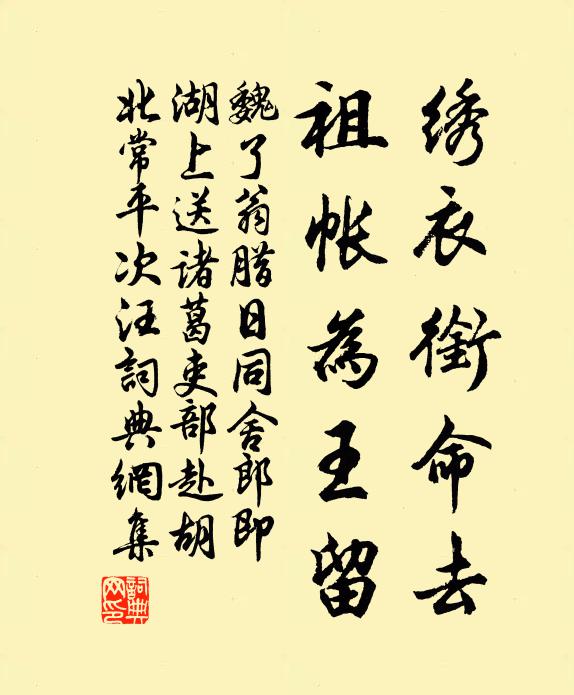 绣衣銜命去
祖帐為王留
魏了翁腊日同舍郎即
湖上送诸葛吏部赴胡
北常平次汪詞典網集
詞典
网印